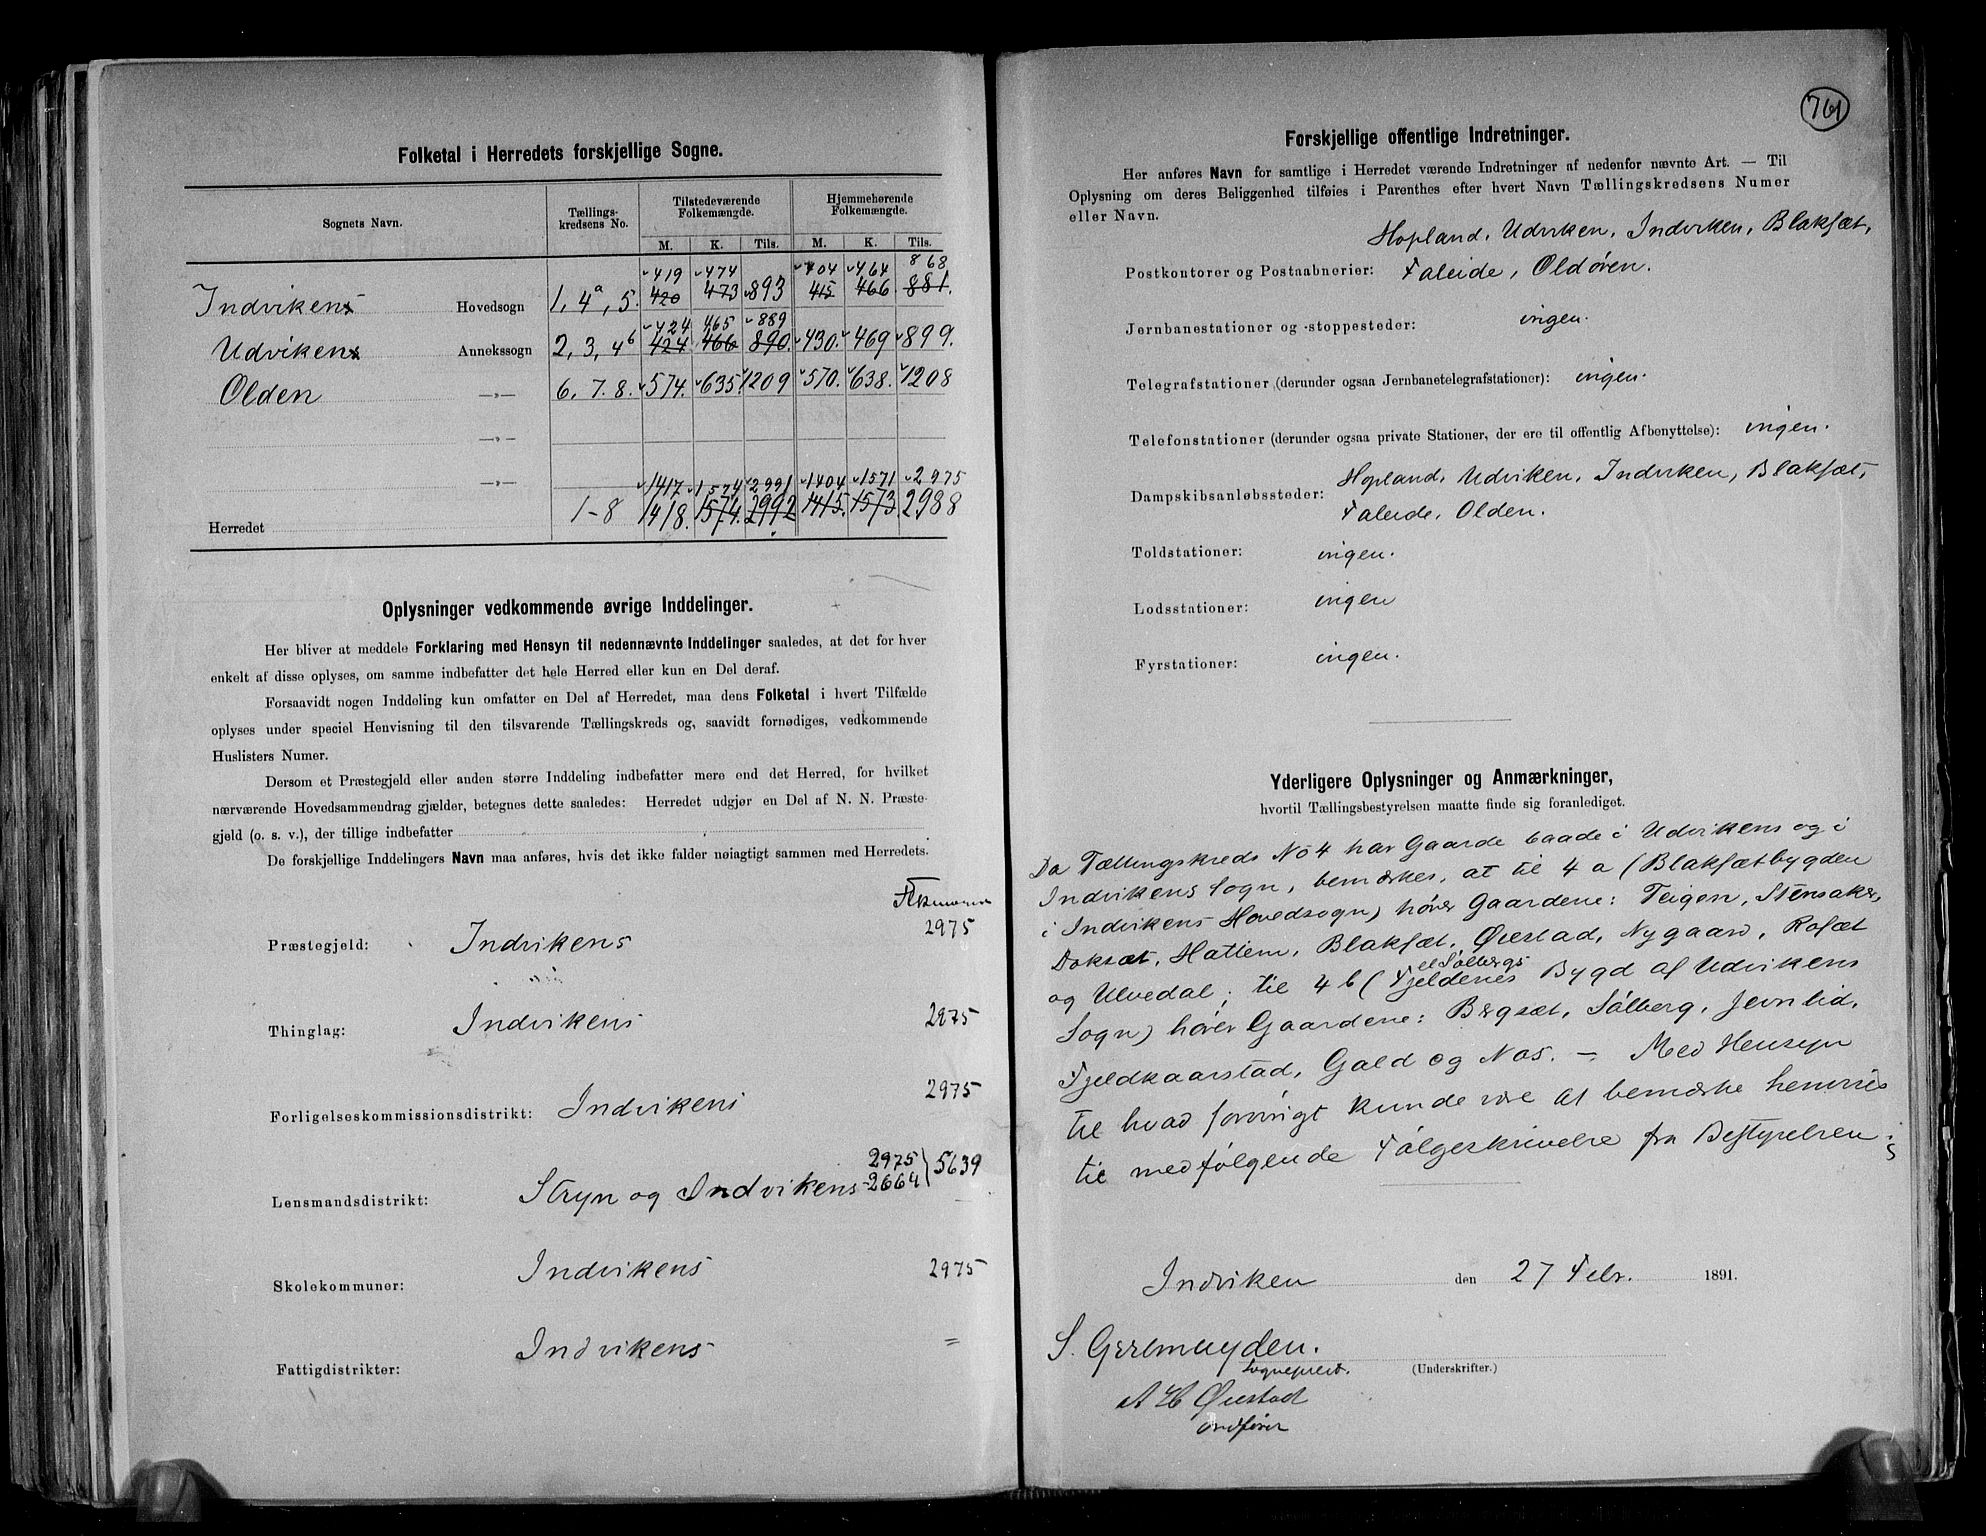 Folketal i Herredets forskjellige Sogne.
Sognets Navn. Tællings-kredsens No. Tilstedeværende Folkemængde. Hjemmehørende Folkemængde.
M. K. Tils. M. K. Tils.
419 474 404 464 868
Indvikens Hovedsogn 1, 4a, 5. 420 473 893 415 466 881.
424 465 889
Udvikens Annekssogn 2, 3, 4b 424 466 890. 430. 469 899.
Olden —„— 6, 7. 8. 574. 635 1209 570. 638. 1208
—„—
—„—
1417 1574 2991 1404 1571 2975
Herredet 1-8 1418. 1574. 2992 1415. 1573. 2988
Oplysninger vedkommende øvrige Inddelinger.
Her bliver at meddele Forklaring med Hensyn til nedennævnte Inddelinger saaledes, at det for hver
enkelt af disse oplyses, om samme indbefatter det hele Herred eller kun en Del deraf.
Forsaavidt nogen Inddeling kun omfatter en Del af Herredet, maa dens Folketal i hvert Tilfælde
oplyses under speciel Henvisning til den tilsvarende Tællingskreds og, saavidt fornødiges, vedkommende
Huslisters Numer.
Dersom et Præstegjeld eller anden større Inddeling indbefatter mere end det Herred, for hvilket
nærværende Hovedsammendrag gjælder, betegnes dette saaledes: Herredet udgjør en Del af N. N. Præste-
gjeld (o. s. v.), der tillige indbefatter
De forskjellige Inddelingers Navn maa anføres, hvis det ikke falder nøiagtigt sammen med Herredets.
Præstegjeld: Indvikens 2975
Thinglag: Indvikens 2975
Forligelseskommissionsdistrikt: Indvikens 2975
Lensmandsdistrikt: Stryn og Indvikens 2975 2664 } 5639
Skolekommuner: Indvikens 2975
Fattigdistrikter: Indvikens =
761
Forskjellige offentlige Indretninger.
Her anføres Navn for samtlige i Herredet værende Indretninger af nedenfor nævnte Art. — Til
Oplysning om deres Beliggenhed tilføies i Parenthes efter hvert Navn Tællingskredsens Numer
eller Navn.
Hopland, Udviken, Indviken, Blaksæt,
Postkontorer og Postaabnerier: Faleide, Oldøren.
Jernbanestationer og -stoppesteder: ingen.
Telegrafstationer (derunder ogsaa Jernbanetelegrafstationer): ingen.
Telefonstationer (derunder ogsaa private Stationer, der ere til offentlig Afbenyttelse): ingen.
Hopland, Udviken, Indviken, Blaksæt,
Dampskibsanløbssteder:
Faleide, Olden.
Toldstationer: ingen.
Lodsstationer: ingen
Fyrstationer: ingen.
Yderligere Oplysninger og Anmærkninger,
hvortil Tællingsbestyrelsen maatte finde sig foranlediget.
Da Tællingskreds No 4 har Gaarde baade i Udvikens og i
Indvikens Sogn, bemærkes, at til 4 a (Blaksætbygden
i Indvikens Hovedsogn) hører Gaardene: Teigen, Stensaker,
Doksæt, Hattem, Blaksæt, Øvestad, Nygaard, Rosæt
el Sølbergs
og Ulvedal; til 4 b (Fjeldenes Bygd af Udvikens
Sogn) hører Gaardene: Bergsæt, Sølberg, Jevnlid,
Fjeldkaarstad, Gald og Nos. — Med Hensyn
til hvad forøvrigt kunde være at bemærke henvises
til medfølgende Følgeskrivelse fra Bestyrelsen.
Indviken den 27 Febr. 1891.
S. Geelmuyden.
Sogneprest. (Underskrifter.)
A H Øvestad
ordfører